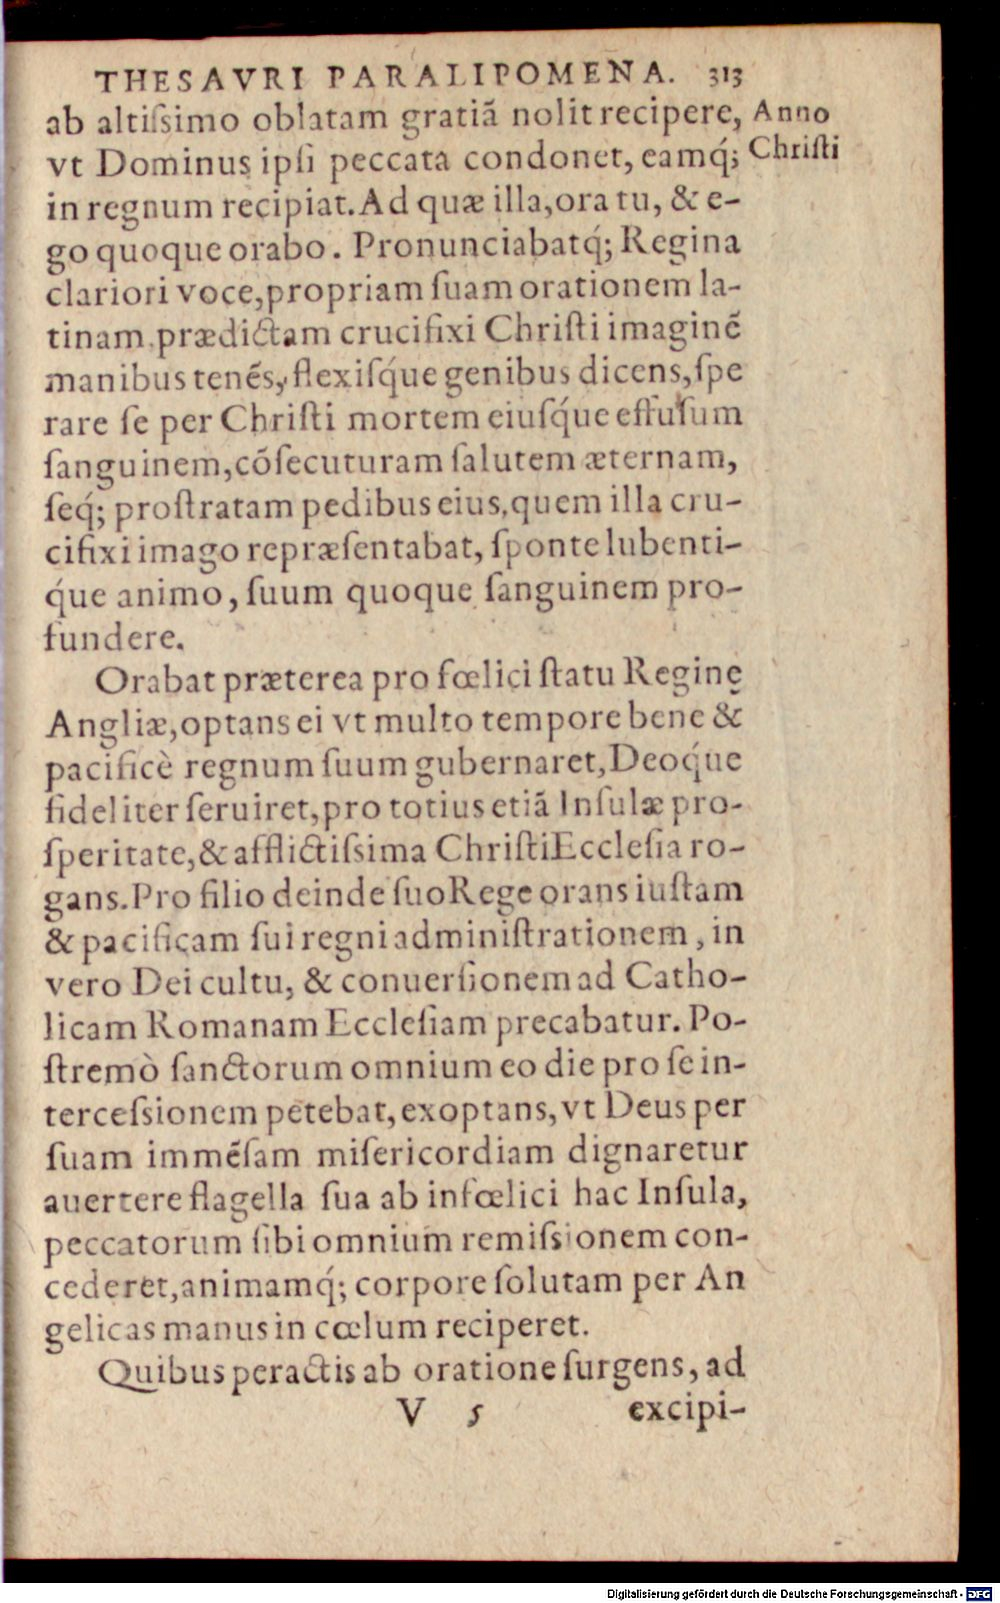 THESAVRI PARALIPOMENA. 313
ab altiſsimo oblatam gratiã nolit recipere, Anno
vt Dominus ipſi peccata condonet, eamq́; Chriſti
in regnum recipiat. Ad quæ illa, ora tu, & e-
go quoque orabo. Pronunciabatq́; Regina
clariori voce, propriam ſuam orationem la-
tinam, prædictam crucifixi Chriſti imaginẽ
manibus tenẽs, flexiſq́ue genibus dicens, ſpe
rare ſe per Chriſti mortem eiuſq́ue effuſum
ſanguinem, cõſecuturam ſalutem æternam,
ſeq́; proſtratam pedibus eius, quem illa cru-
cifixi imago repræſentabat, ſponte lubenti-
q́ue animo, ſuum quoque ſanguinem pro-
fundere.
Orabat præterea pro fœlici ſtatu Reginę
Angliæ, optans ei vt multo tempore bene &
pacificè regnum ſuum gubernaret, Deoq́ue
fideliter ſeruiret, pro totius etiã Inſulæ pro-
ſperitate, & afflictiſsima Chriſti Eccleſia ro-
gans. Pro filio deinde ſuo Rege orans iuſtam
& pacificam ſui regni adminiſtrationem, in
vero Dei cultu, & conuerſionem ad Catho-
licam Romanam Eccleſiam precabatur. Po-
ſtremò ſanctorum omnium eo die pro ſe in-
terceſsionem petebat, exoptans, vt Deus per
ſuam immẽſam miſericordiam dignaretur
auertere flagella ſua ab infœlici hac Inſula,
peccatorum ſibi omnium remiſsionem con-
cederet, animamq́; corpore ſolutam per An
gelicas manus in cœlum reciperet.
Quibus peractis ab oratione ſurgens, ad
V 5 excipi-
Digitalisierung gefördert durch die Deutsche Forschungsgemeinschaft - DFG